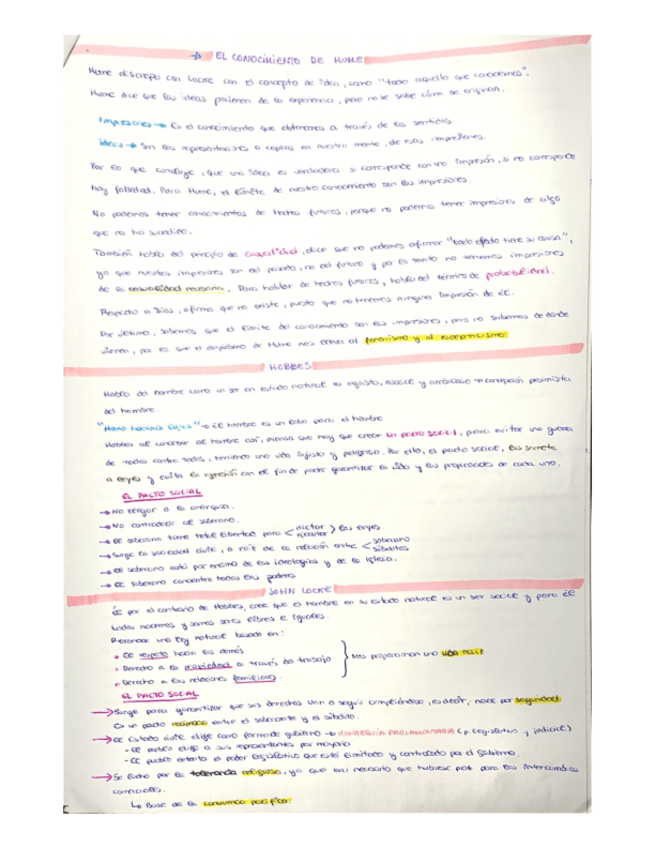 → EL CONOCIMIENTO DE HUME
Hume discrepa con Locke con el concepto de idea, como "todo aquello que conocemos".
Hume dice que las ideas provienen de la experiencia, pero no se sabe cómo se originan.
Impresiones → Es el conocimiento que obtenemos a través de los sentidos.
Ideas → Son las representaciones o copias en nuestra mente, de esas impresiones.
Por lo que concluye, que una idea es verdadera si corresponde con una impresión, si no corresponde
hay falsedad. Para Hume, el límite de nuestro conocimiento son las impresiones.
No podemos tener conocimientos de hechos futuros, porque no podemos tener impresiones de algo
que no ha sucedido.
También habla del principio de causalidad, dice que no podemos afirmar "todo efecto tiene su causa",
ya que nuestras impresiones son del pasado, no del futuro y por lo tanto no tenemos impresiones
de la causalidad necesaria. Para hablar de hechos futuros, habla del término de probabilidad.
Respecto a Dios, afirma que no existe, puesto que no tenemos ninguna impresión de él.
Por último, sabemos que el límite del conocimiento son las impresiones, pero no sabemos de dónde
vienen, por lo que el empirismo de Hume nos lleva al fenomismo y al escepticismo.
HOBBES
Habla del hombre como un ser en estado natural es egoísta, asocial y ambicioso → concepción pesimista
del hombre
"Homo homini lupus" → El hombre es un lobo para el hombre
Hobbes al concebir al hombre así, piensa que hay que crear un pacto social, para evitar una guerra
de todos contra todos, teniendo una vida injusta y peligrosa. Por ello, el pacto social, les somete
a leyes y evita la agresión con el fin de poder garantizar la vida y las propiedades de cada uno.
EL PACTO SOCIAL
→ No llegar a la anarquía.
→ No contradecir al soberano.
→ El soberano tiene total libertad para < dictar ejecutar > las leyes.
→ Surge la sociedad civil, a raíz de la relación entre < soberano súbditos
→ El soberano está por encima de las ideologías y de la Iglesia.
→ El soberano concentra todos los poderes
JOHN LOCKE
Él por el contrario de Hobbes, cree que el hombre en su estado natural es un ser social y para él
todos nacemos y somos seres libres e iguales.
Reconoce una ley natural basada en:
• El respeto hacia los demás
• Derecho a la propiedad a través del trabajo } Nos proporcionan una vida feliz
• Derecho a las relaciones familiares.
EL PACTO SOCIAL
→ Surge para garantizar que sus derechos van a seguir cumpliéndose, es decir, nace por seguridad
Es un pacto recíproco entre el soberano y el súbdito.
→ El Estado civil elige como forma de gobierno → MONARQUÍA PARLAMENTARIA (p. legislativo y judicial)
- El pueblo elige a sus representantes por mayoría
- El pueblo ostenta el poder legislativo que está limitado y controlado por el gobierno.
→ Se lucha por la tolerancia religiosa, ya que era necesario que hubiese paz para los intercambios
comerciales.
↳ Base de la convivencia pacífica.